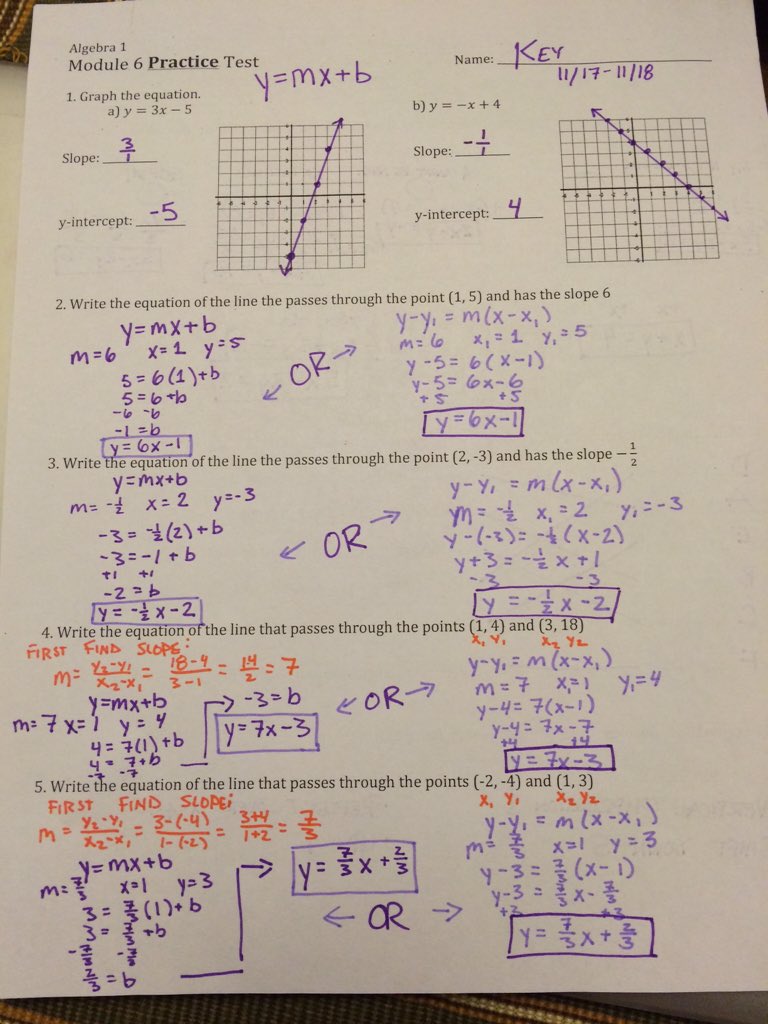 Algebra 1
Module 6 Practice Test
y=mx+b
Name: KEY
11/17-11/18
1. Graph the equation.
a) y = 3x − 5
Slope: 3/1
y-intercept: -5
b) y = −x + 4
Slope: -1/1
y-intercept: 4
2. Write the equation of the line the passes through the point (1, 5) and has the slope 6
y=mx+b
m=6 x=1 y=5
5=6(1)+b
5=6+b
-6 -6
-1=b
y=6x-1
OR
y-y₁=m(x-x₁)
m=6 x₁=1 y₁=5
y-5=6(x-1)
y-5=6x-6
+5 +5
y=6x-1
3. Write the equation of the line the passes through the point (2, -3) and has the slope −1/2
y=mx+b
m=-1/2 x=2 y=-3
-3=-1/2(2)+b
-3=-1+b
+1 +1
-2=b
y=-1/2x-2
OR
y-y₁=m(x-x₁)
m=-1/2 x₁=2 y₁=-3
y-(-3)=-1/2(x-2)
y+3=-1/2x+1
-3 -3
y=-1/2x-2
4. Write the equation of the line that passes through the points (1, 4) and (3, 18)
x₁ y₁ x₂ y₂
FIRST FIND SLOPE:
m=y₂-y₁/x₂-x₁=18-4/3-1=14/2=7
y=mx+b
m=7 x=1 y=4
4=7(1)+b
4=7+b
-7 -7
-3=b
y=7x-3
OR
y-y₁=m(x-x₁)
m=7 x₁=1 y₁=4
y-4=7(x-1)
y-4=7x-7
+4 +4
y=7x-3
5. Write the equation of the line that passes through the points (-2, -4) and (1, 3)
x₁ y₁ x₂ y₂
FIRST FIND SLOPE:
m=y₂-y₁/x₂-x₁=3-(-4)/1-(-2)=3+4/1+2=7/3
y=mx+b
m=7/3 x=1 y=3
3=7/3(1)+b
3=7/3+b
-7/3 -7/3
2/3=b
y=7/3x+2/3
OR
y-y₁=m(x-x₁)
m=7/3 x=1 y=3
y-3=7/3(x-1)
y-3=7/3x-7/3
+3 +3
y=7/3x+2/3